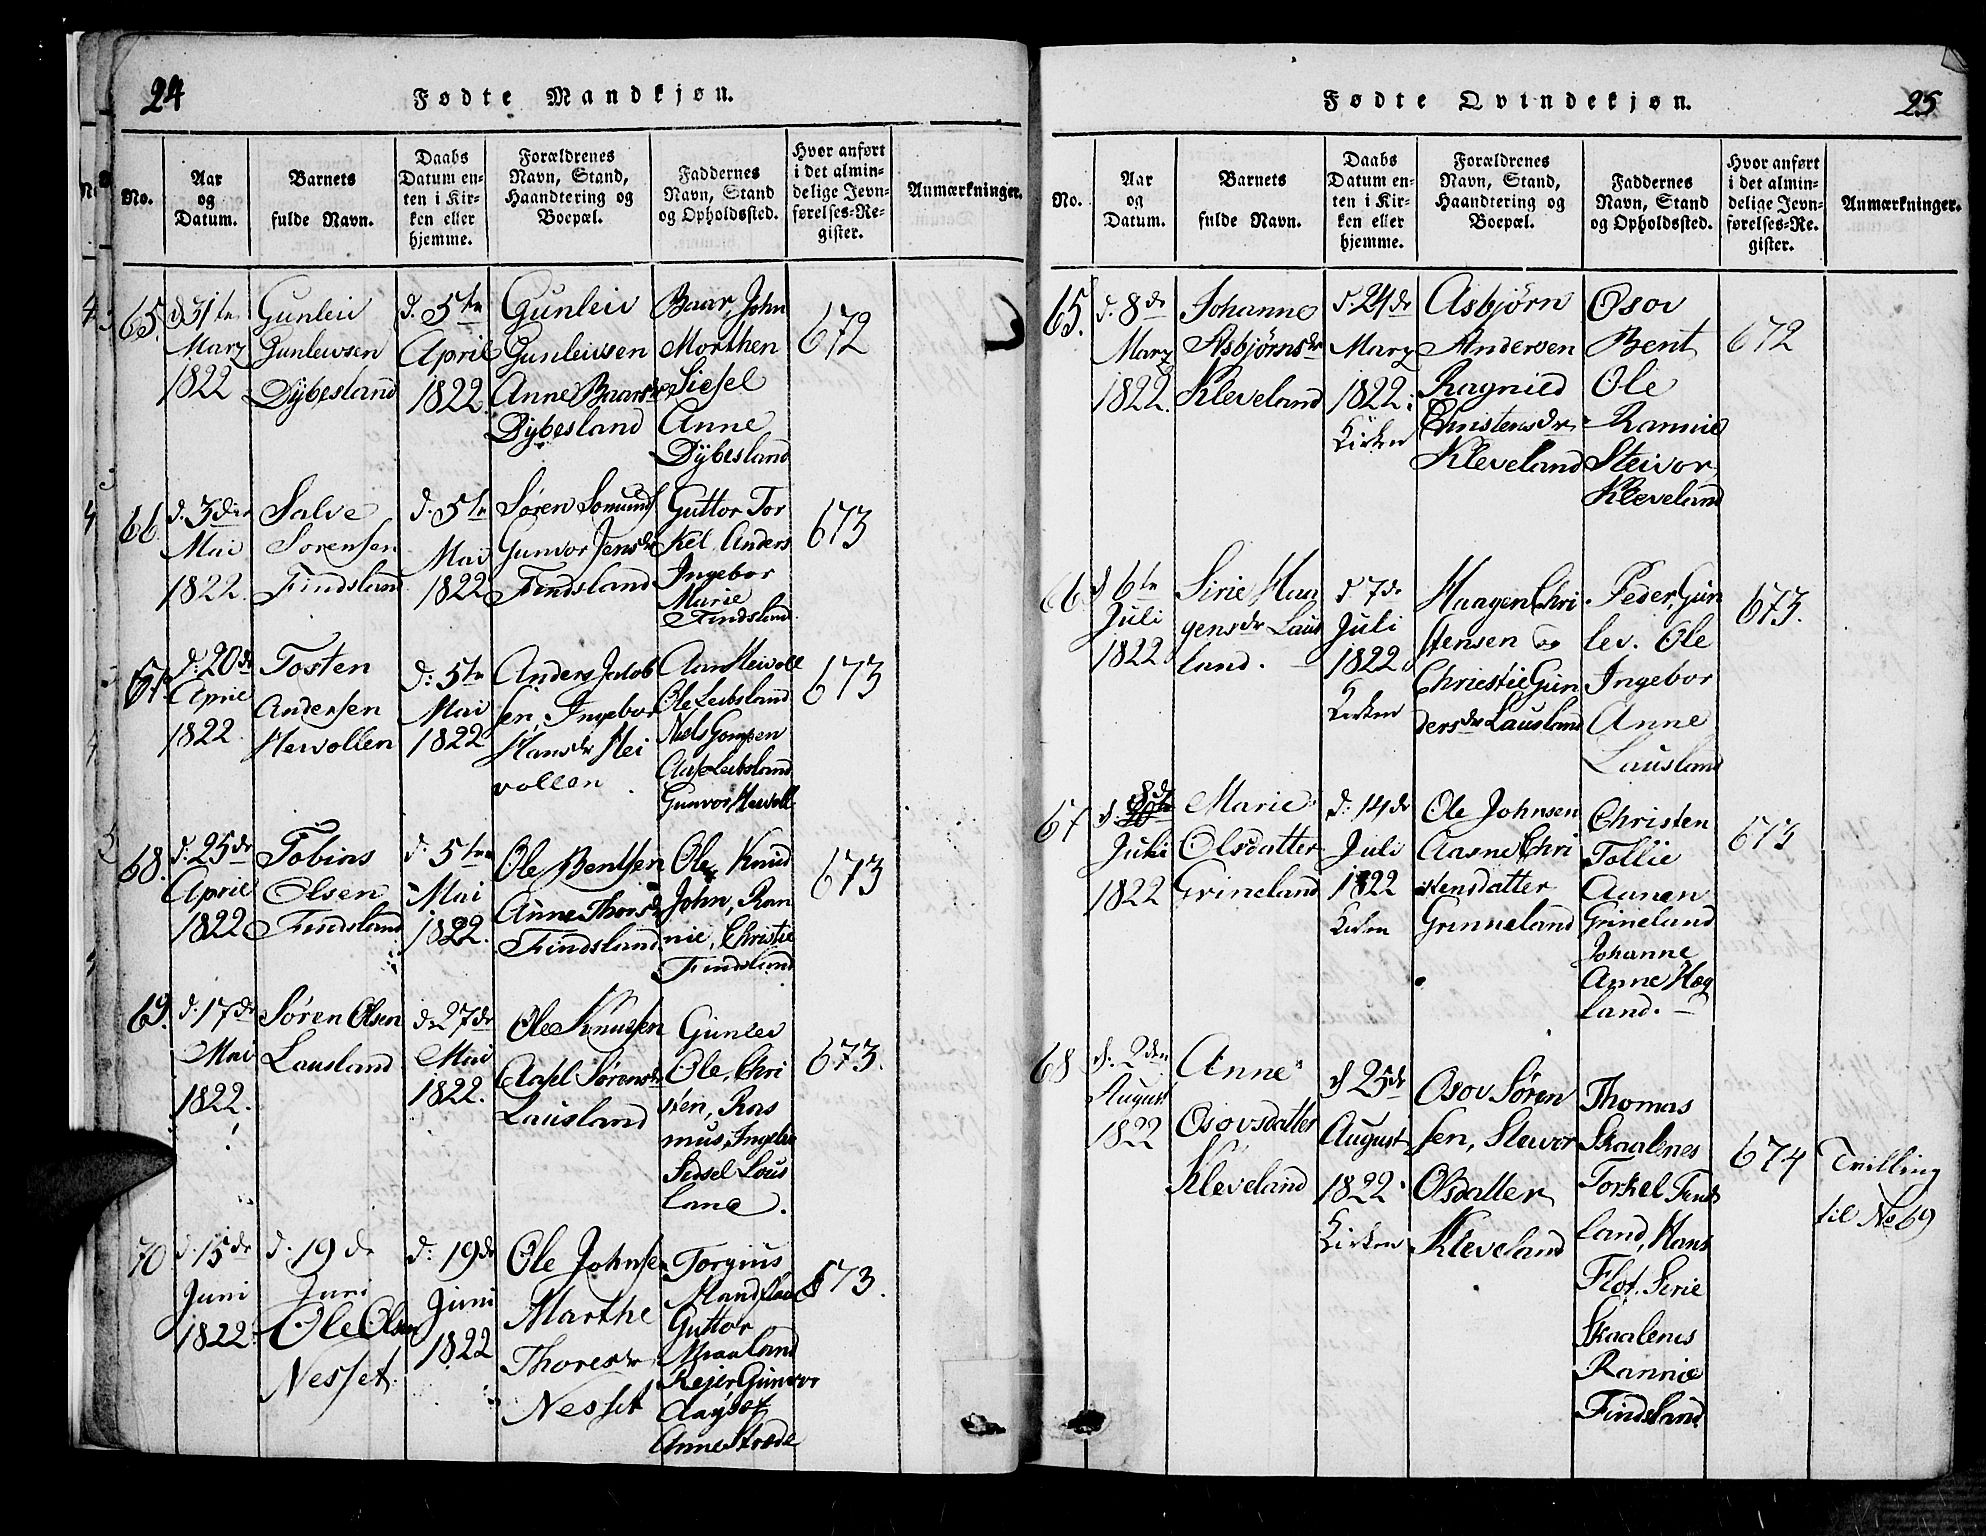 24
Fødte Mandkjøn.
No.
Aar
og
Datum.
Barnets
fulde Navn.
Daabs
Datum en-
ten i Kir-
ken eller
hjemme.
Forældrenes
Navn, Stand,
Haandtering og
Boepæl.
Faddernes
Navn, Stand
og Opholdssted.
Hvor anført
i det almin-
delige Jevn-
førelses-Re-
gister.
Anmærkninger.
65.
d 31te
Marz
1822
Gunleiv
Gunleivsen
Dÿbesland
d. 5te
April
1822
Gunleiv
Gunleivsen
Anne Baarsdr
Dÿbesland
Baar, John
Morthen
Siesel
Anne
Dÿbesland
672
66
d. 3die
Mai
1822.
Salve
Sorensen
Findsland
d. 5te
Mai
1822
Søren Somunds
Gunvor Jensdr
Findsland
Guttor Tor
kel, Anders
Ingebor
Marie
Findsland
673
67.
d: 20de
April
1822.
Tosten
Andersen
Heivollen
d: 5te
Mai
1822
Anders Jacob
sen, Ingebor
Hansdr Hei
vollen
Aan Heivoll
Ole Leibsland
Niels
Aase Leibsland
Gunvor Heivoll
673
68.
d. 25de
April
1822
Tobias
Olsen
Findsland
d. 5te
Mai
1822.
Ole Bentsen
Anne Thorsdr
Findsland
Ole, Knud
John, Ran
nie, Christie
Findsland
673
69.
d. 17de
Mai
1822.
Søren Olsen
Lausland
d. 27de
Mai
1822.
Ole Knudsen
Aasel Sørensdr
Lausland
Gunlev
Ole, Chri
sten, Ras
mus, Ingebor
Sidsel Laus
land.
673.
70
d. 15de
Juni
1822.
d. 19de
Juni
Ole Olsen
Nesset
d: 19de
Juni
1822
Ole Johnsen
Marthe
Thoresdr
Nesset
Torgius
Mandflaae
Guttor
Rejer Gunvor
Anne Strøde
673.
25
Fødte Qvindekjøn.
No.
Aar
og
Datum.
Barnets
fulde Navn.
Daabs
Datum en-
ten i Kir-
ken eller
hjemme.
Forældrenes
Navn, Stand,
Haandtering og
Boepæl.
Faddernes
Navn, Stand
og Opholdssted.
Hvor anført
i det almin-
delige Jevn-
førelses-Re-
gister.
Anmærkninger.
65.
d. 8de
Marz
1822.
Johanne
Asbjørnsdr
Kleveland
d. 24de
Marz
1822.
Kirken
Asbjørn
Andersen
Ragnied
Christensdr
Kleveland
Osov
Bent
Ole
Rannie
Steivor
Kleveland
672
66
d 6te
Juli
1822
Sirie Haa
gensdr Laus
land.
d 7de
Juli
1822.
Kirken
Haagen Chri
stensen og
Christie Gun
dersdr Lausland
Peder, Gun
lev. Ole
Ingebor
Anne
Lausland
673.
67
d. 8de
Juli
1822
Marie
Olsdatter
Grineland
d: 14de
Juli
1822
Kirken
Ole Johnsen
Aasne Chri
stensdatter
Grinneland
Christen
Tollie
Aanen
Grineland
Johanne
Anne Hæg
land.
673
68
d. 2den
August
1822
Anne
Osovsdatter
Kleveland
d 25de
August
1822.
Kirken
Osov Søren
sen, Steivor
Olsdatter
Kleveland
Thomas
Skaalenes
Torkel Finds
land, Hans
Flot. Sirie
Skaalenes
Rannie
Findsland
674
Tvilling
til No 69